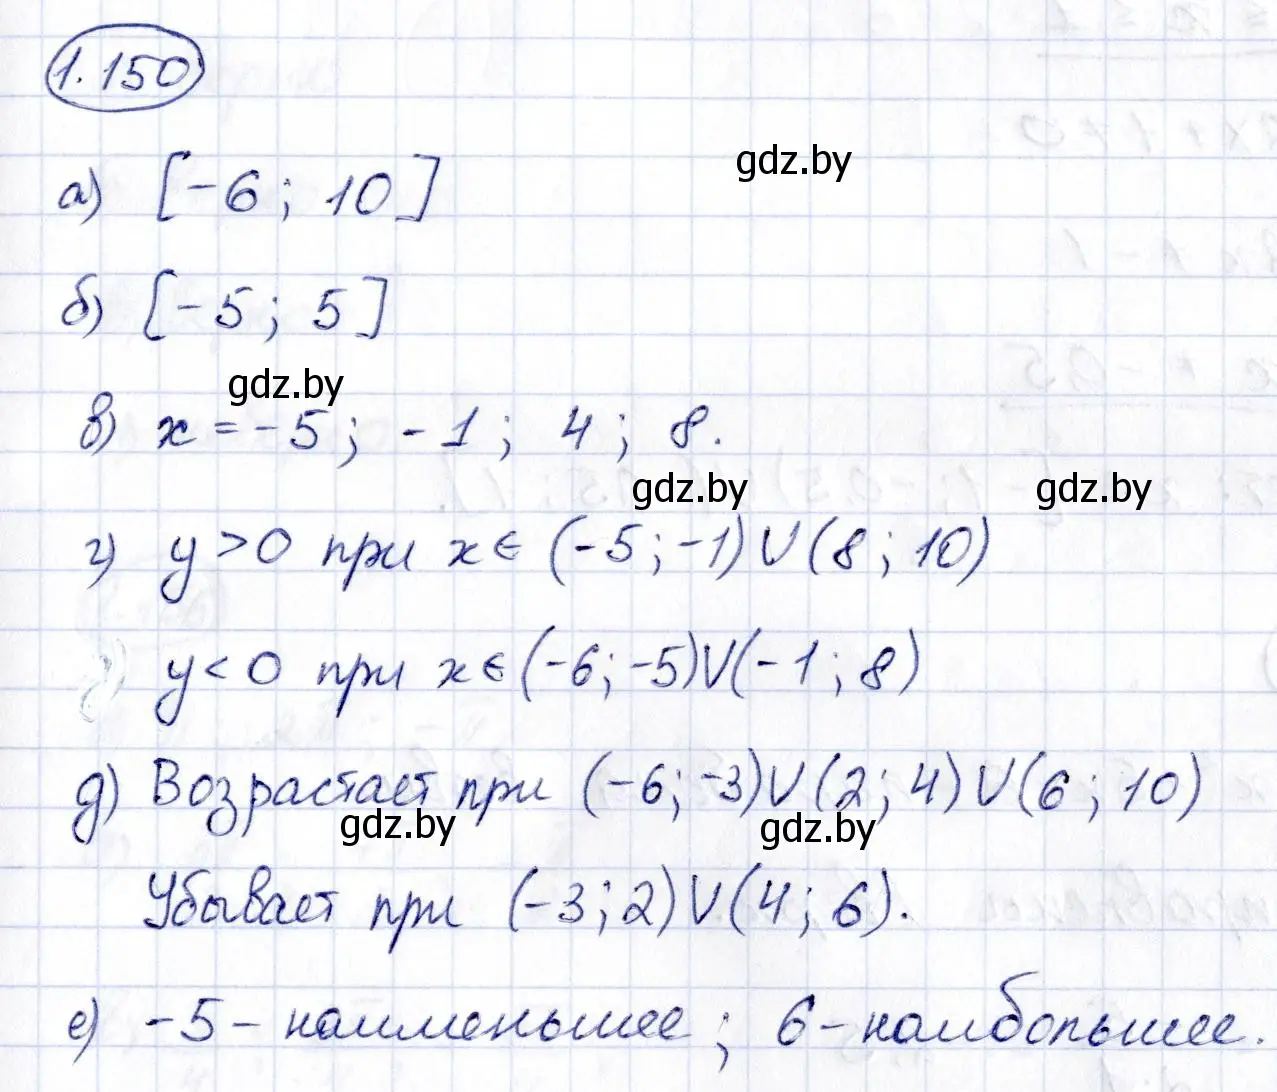 1.150
gdz.by
а) [-6; 10]
б) [-5; 5]
gdz.by
в) x = -5; -1; 4; 8.
gdz.by gdz.by
г) y > 0 при x ∈ (-5; -1) ∪ (8; 10)
y < 0 при x ∈ (-6; -5) ∪ (-1; 8)
д) Возрастает при (-6; -3) ∪ (2; 4) ∪ (6; 10)
gdz.by gdz.by
Убывает при (-3; 2) ∪ (4; 6).
е) -5 - наименьшее; 6 - наибольшее.